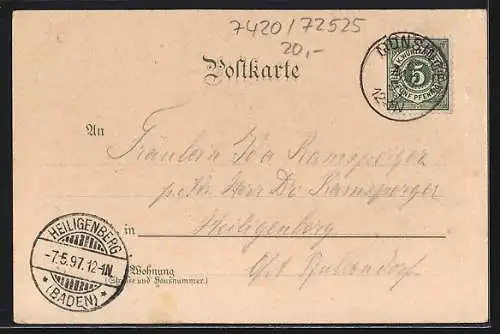 7420/72525
20,-
Postkarte
MÜNSINGEN
5
FÜNF PFENNIG
12-1N
An
Fräulein Ida Ramsperger
p. Adr. Herr Dr. Ramsperger
in Heiligenberg
Wohnung
(Straße und Hausnummer)
O/A Pfullendorf
HEILIGENBERG
-7.5.97.12-1N.
*(BADEN)*